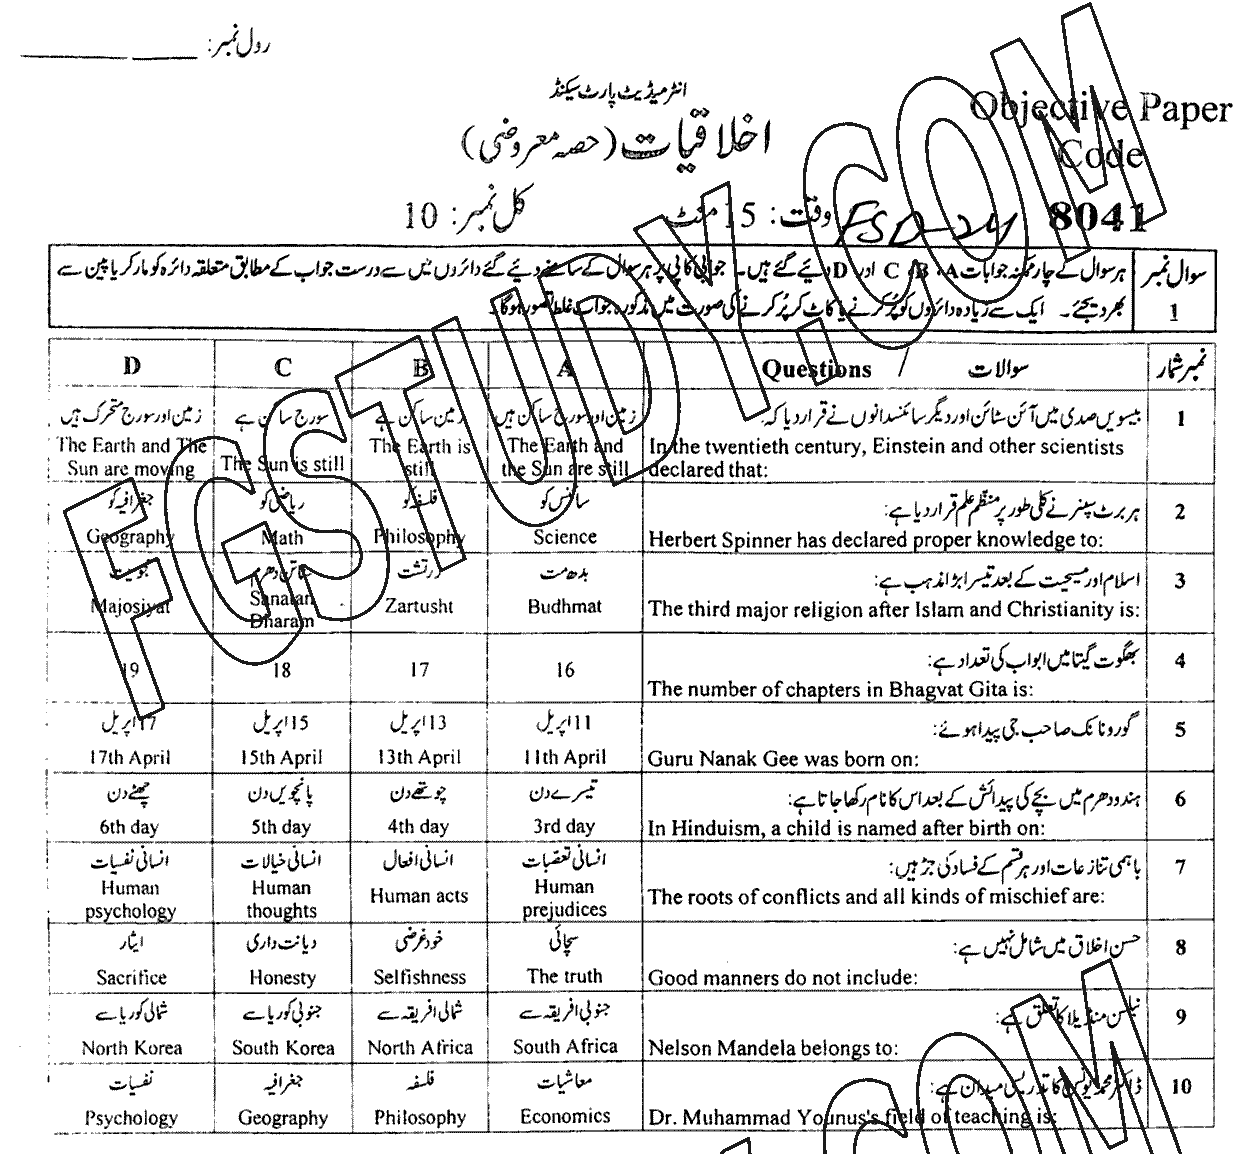 رول نمبر:
انٹرمیڈیٹ پارٹ سیکنڈ
Objective Paper
Code
اخلاقیات (حصہ معروضی)
8041
وقت: 15 منٹ
کل نمبر: 10
FSD-24
سوال نمبر 1
ہر سوال کے چار ممکنہ جوابات A، B، C اور D دیئے گئے ہیں۔ جوابی کاپی پر ہر سوال کے سامنے دیئے گئے دائروں میں سے درست جواب کے مطابق متعلقہ دائرہ کو مارکر یا پین سے
بھر دیجئے۔ ایک سے زیادہ دائروں کو پُر کرنے یا کاٹ کر پُر کرنے کی صورت میں مذکورہ جواب غلط تصور ہوگا۔
نمبر شمار
سوالات / Questions
A
B
C
D
1
بیسویں صدی میں آئن سٹائن اور دیگر سائنسدانوں نے قرار دیا کہ:
In the twentieth century, Einstein and other scientists
declared that:
زمین اور سورج ساکن ہیں
The Earth and
the Sun are still
زمین ساکن ہے
The Earth is
still
سورج ساکن ہے
The Sun is still
زمین اور سورج متحرک ہیں
The Earth and The
Sun are moving
2
ہربرٹ سپنر نے کلی طور پر منظّم علم قرار دیا ہے:
Herbert Spinner has declared proper knowledge to:
سائنس کو
Science
فلسفہ کو
Philosophy
ریاضی کو
Math
جغرافیہ کو
Geography
3
اسلام اور مسیحیت کے بعد تیسرا بڑا مذہب ہے:
The third major religion after Islam and Christianity is:
بدھ مت
Budhmat
زرتشت
Zartusht
سناتن دھرم
Sanatan
Dharam
مجوسیت
Majosiyat
4
بھگوت گیتا میں ابواب کی تعداد ہے:
The number of chapters in Bhagvat Gita is:
16
17
18
19
5
گورو نانک صاحب جی پیدا ہوئے:
Guru Nanak Gee was born on:
11اپریل
11th April
13اپریل
13th April
15اپریل
15th April
17اپریل
17th April
6
ہندو دھرم میں بچے کی پیدائش کے بعد اس کا نام رکھا جاتا ہے:
In Hinduism, a child is named after birth on:
تیسرے دن
3rd day
چوتھے دن
4th day
پانچویں دن
5th day
چھٹے دن
6th day
7
باہمی تنازعات اور ہر قسم کے فساد کی جڑ ہیں:
The roots of conflicts and all kinds of mischief are:
انسانی تعصبات
Human
prejudices
انسانی افعال
Human acts
انسانی خیالات
Human
thoughts
انسانی نفسیات
Human
psychology
8
حسن اخلاق میں شامل نہیں ہے:
Good manners do not include:
سچائی
The truth
خودغرضی
Selfishness
دیانتداری
Honesty
ایثار
Sacrifice
9
نیلسن منڈیلا کا تعلق ہے:
Nelson Mandela belongs to:
جنوبی افریقہ سے
South Africa
شمالی افریقہ سے
North Africa
جنوبی کوریا سے
South Korea
شمالی کوریا سے
North Korea
10
ڈاکٹر محمد یونس کا تدریسی میدان ہے:
Dr. Muhammad Younus's field of teaching is:
معاشیات
Economics
فلسفہ
Philosophy
جغرافیہ
Geography
نفسیات
Psychology
FGSTUDY.COM
.COM